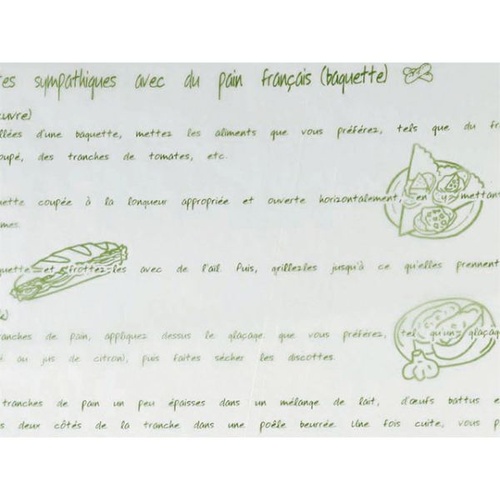 es sympathiques avec du pain français (baguette)
uvre)
llées d'une baguette, mettez les aliments que vous préférez, tels que du fr
oupé, des tranches de tomates, etc.
uette coupée à la longueur appropriée et ouverte horizontalement, en y mettan
mes.
uette et frottez-les avec de l'ail. Puis, grillez-les jusqu'à ce qu'elles prennent
e)
ranches de pain, appliquez dessus le glaçage que vous préférez, tel qu'un glaçag
é au jus de citron), puis faites sécher les biscottes.
tranches de pain un peu épaisses dans un mélange de lait, d'œufs battus e
s deux côtés de la tranche dans une poêle beurrée. Une fois cuite, vous p